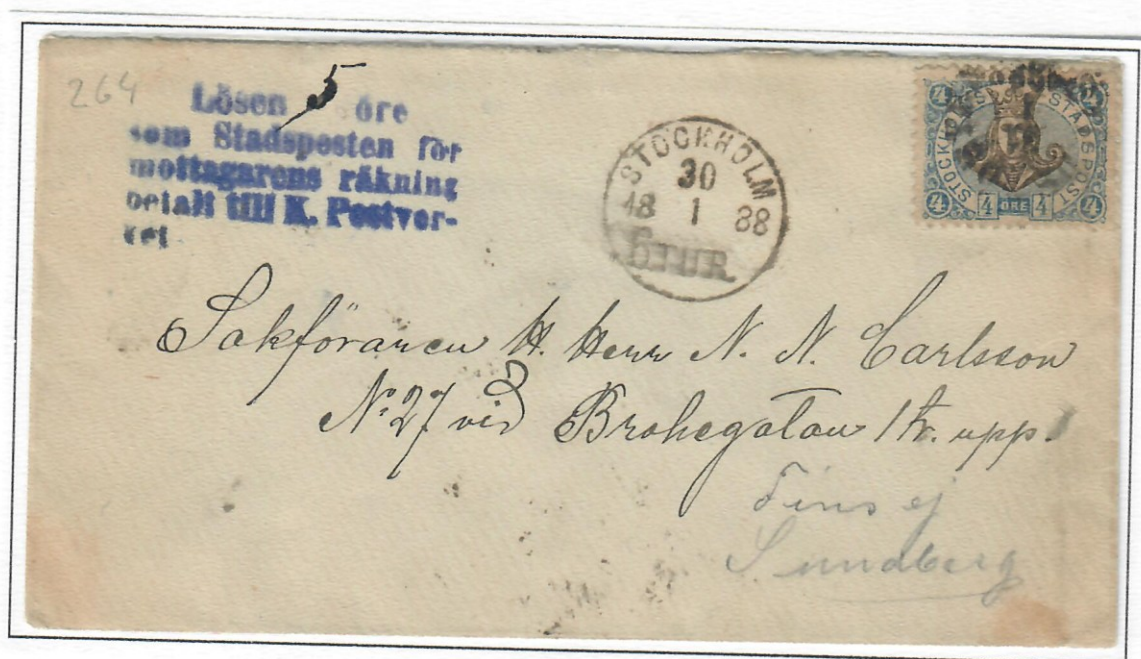 264
Lösen 5 öre
som Stadsposten för
mottagarens räkning
betalt till K. Postver-
ket
STOCKHOLM
30
18 1 88
6 TUR.
STOCKHOLMS STADSPOST
4 4
4 ÖRE 4
4 4
Sakföraren H. Herr N. N. Carlsson
No 27 vid Brahegatan 1 tr. upp.
Fins ej
Sundberg